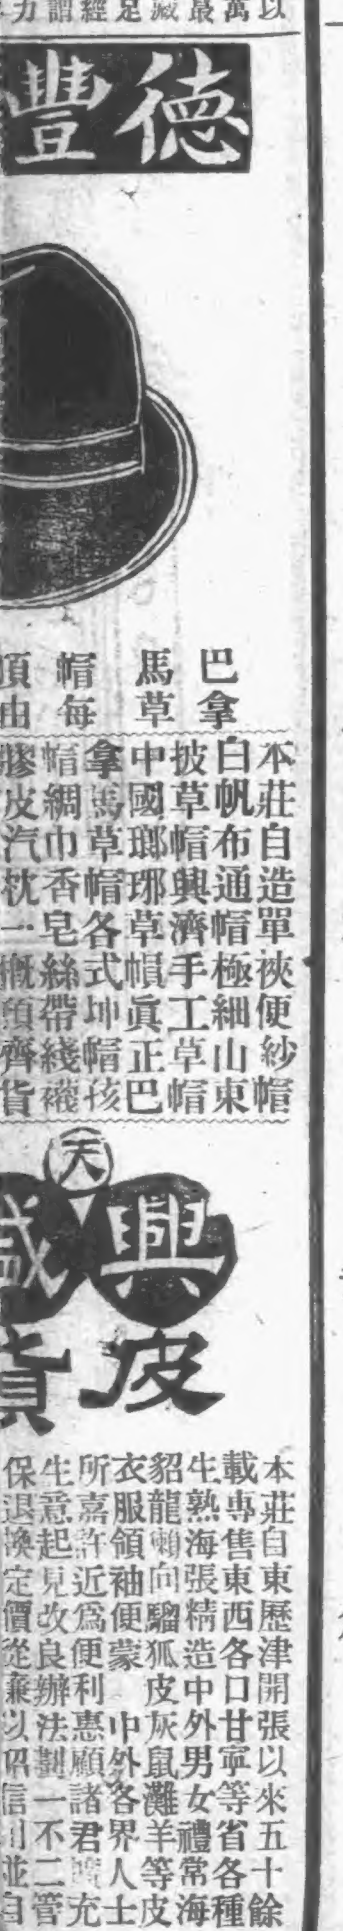 以
萬
最
減
足
經
謂
力
德豐
巴拿
馬草
帽每
頂由
本莊自造單裌便紗帽
白帆布通帽極細山東
披草帽興濟手工草帽
中國瑯琊草帽眞正巴
拿馬草帽各式坤帽孩
帽綢巾香皂絲帶綫襪
膠皮汽枕一概預齊貨
天
興盛
皮貨
本莊自東歷津開張以來五十餘
載專售東西各口甘寧等省各種
生熟海張精造中外男女禮常海
貂龍獺向騮狐皮灰鼠灘羊等皮
衣服領袖便蒙 中外各界人士
所嘉許近爲便利惠顧諸君 充
生意起見改良辦法劃一不二管
保退換定價從廉以昭信 並自